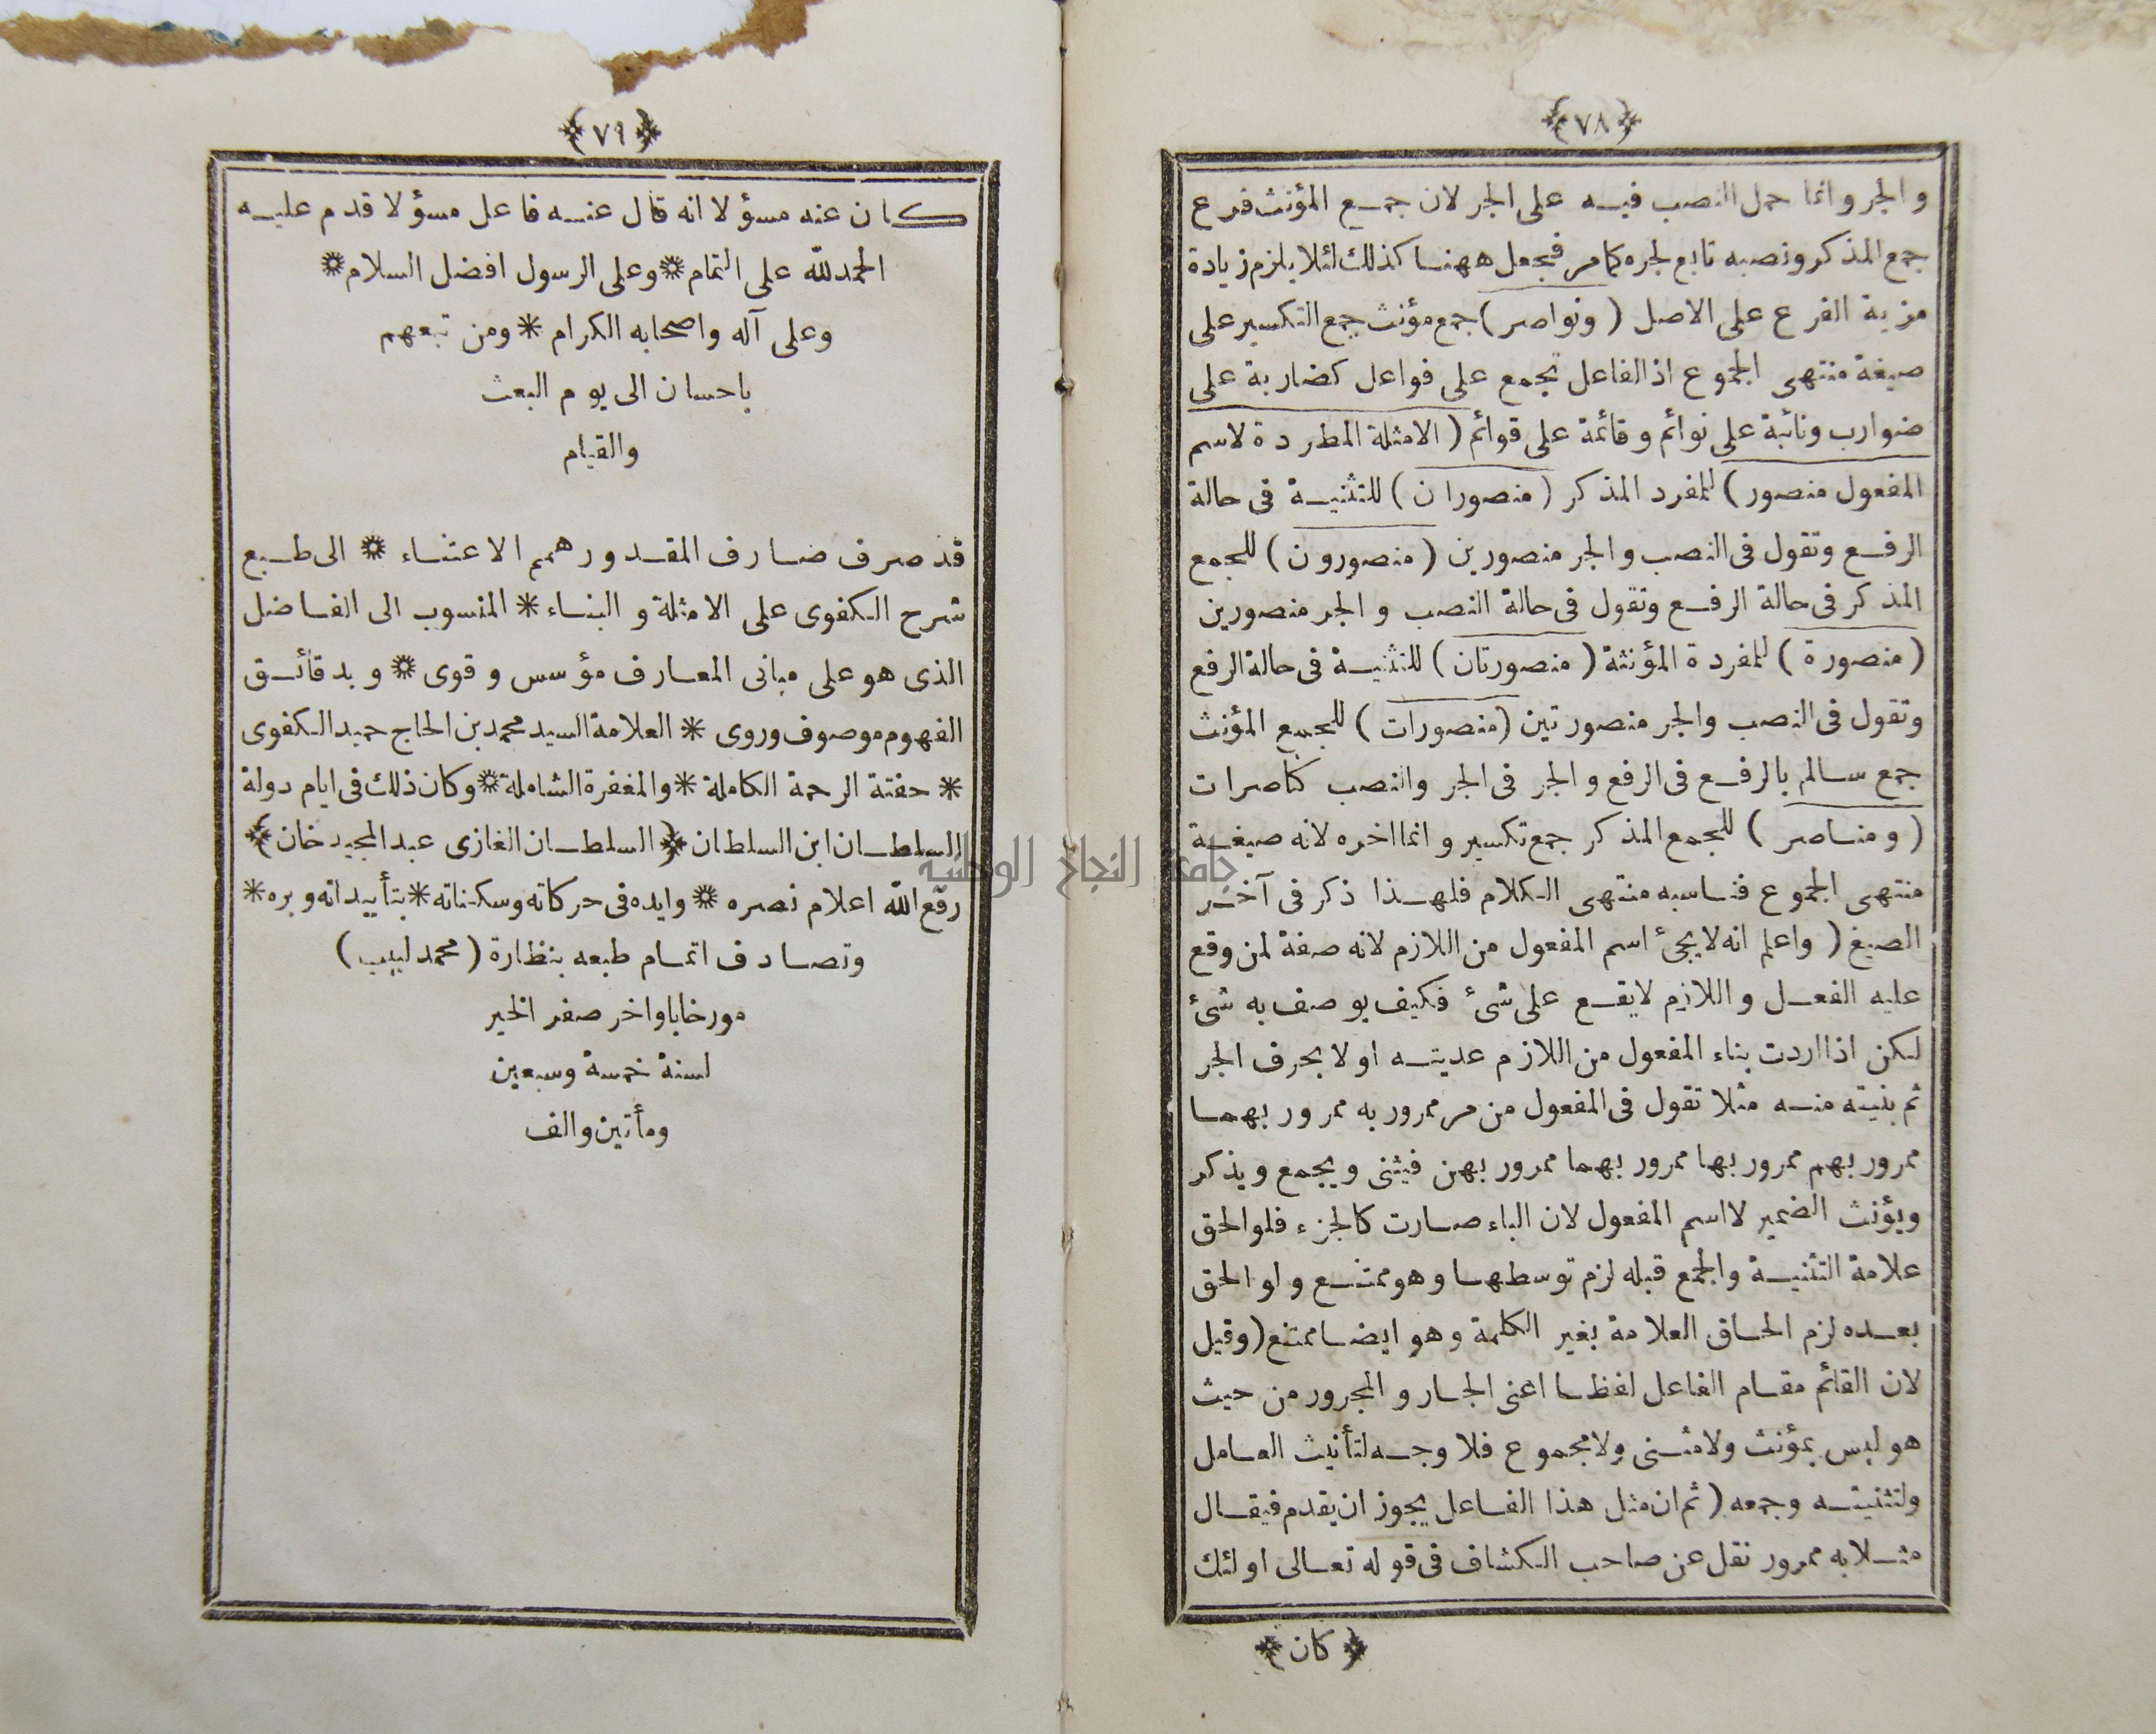 ﴿٧٨﴾
والجر وانما حمل النصب فيه على الجر لان جمع المؤنث فرع
جمع المذكر ونصبه تابع لجره كمامر فجعل ههنا كذلك لئلا يلزم زيادة
مزية الفرع على الاصل ( ونواصر ) جمع مؤنث جمع التكسير على
صيغة منتهى الجموع اذ الفاعل يجمع على فواعل كضاربة على
ضوارب ونائبة على نوائم وقائمة على قوائم ( الامثلة المطردة لاسم
المفعول منصور ) للمفرد المذكر ( منصوران ) للتثنية فى حالة
الرفع وتقول فى النصب والجر منصورين ( منصورون ) للجمع
المذكر فى حالة الرفع وتقول فى حالة النصب والجر منصورين
( منصورة ) للمفردة المؤنثة ( منصورتان ) للتثنية فى حالة الرفع
وتقول فى النصب والجر منصورتين ( منصورات ) للجمع المؤنث
جمع سالم بالرفع فى الرفع والجر فى الجر والنصب كناصرات
( ومناصر ) للجمع المذكر جمع تكسير وانما اخره لانه صيغة
منتهى الجموع فناسبه منتهى الكلام فلهذا ذكر فى آخر
الصيغ ( واعلم انه لا يجئ اسم المفعول من اللازم لانه صفة لمن وقع
عليه الفعل واللازم لايقع على شئ فكيف يوصف به شئ
لكن اذا اردت بناء المفعول من اللازم عديته اولا بحرف الجر
ثم بنيته منه مثلا تقول فى المفعول من مر ممرور به ممرور بهما
ممرور بهم ممرور بها ممرور بهما ممرور بهن فيثنى ويجمع ويذكر
ويؤنث الضمير لا اسم المفعول لان الباء صارت كالجزء فلو الحق
علامة التثنية والجمع قبله لزم توسطها وهو ممتنع ولو الحق
بعده لزم الحاق العلامة بغير الكلمة وهو ايضا ممتنع ( وقيل
لان القائم مقام الفاعل لفظا اعنى الجار والمجرور من حيث
هو ليس بمؤنث ولا مثنى ولا مجموع فلا وجه لتأنيث العامل
ولتثنيته وجمعه ( ثم ان مثل هذا الفاعل يجوز ان يقدم فيقال
مثلا به ممرور نقل عن صاحب الكشاف فى قوله تعالى اولئك
﴿ كان ﴾
﴿٧٩﴾
كان عنه مسؤلا انه قال عنه فاعل مسؤلا قدم عليه
الحمدلله على التمام * وعلى الرسول افضل السلام *
وعلى آله واصحابه الكرام * ومن تبعهم
باحسان الى يوم البعث
والقيام
قد صرف صارف المقدور همم الاعتناء * الى طبع
شرح الكفوى على الامثلة والبناء * المنسوب الى الفاضل
الذى هو على مبانى المعارف مؤسس وقوى * وبدقائق
الفهوم موصوف وروى * العلامة السيد محمد بن الحاج حميد الكفوى
* حفتة الرحمة الكاملة * والمغفرة الشاملة * وكان ذلك فى ايام دولة
السلطان ابن السلطان ﴿ السلطان الغازى عبد المجيد خان ﴾
رفع الله اعلام نصره * وايده فى حركاته وسكناته * بتأييداته وبره *
وتصادف اتمام طبعه بنظارة ( محمد لبيب )
مورخا باواخر صفر الخير
لسنة خمسة وسبعين
ومأتين والف
جامعة النجاح الوطنية